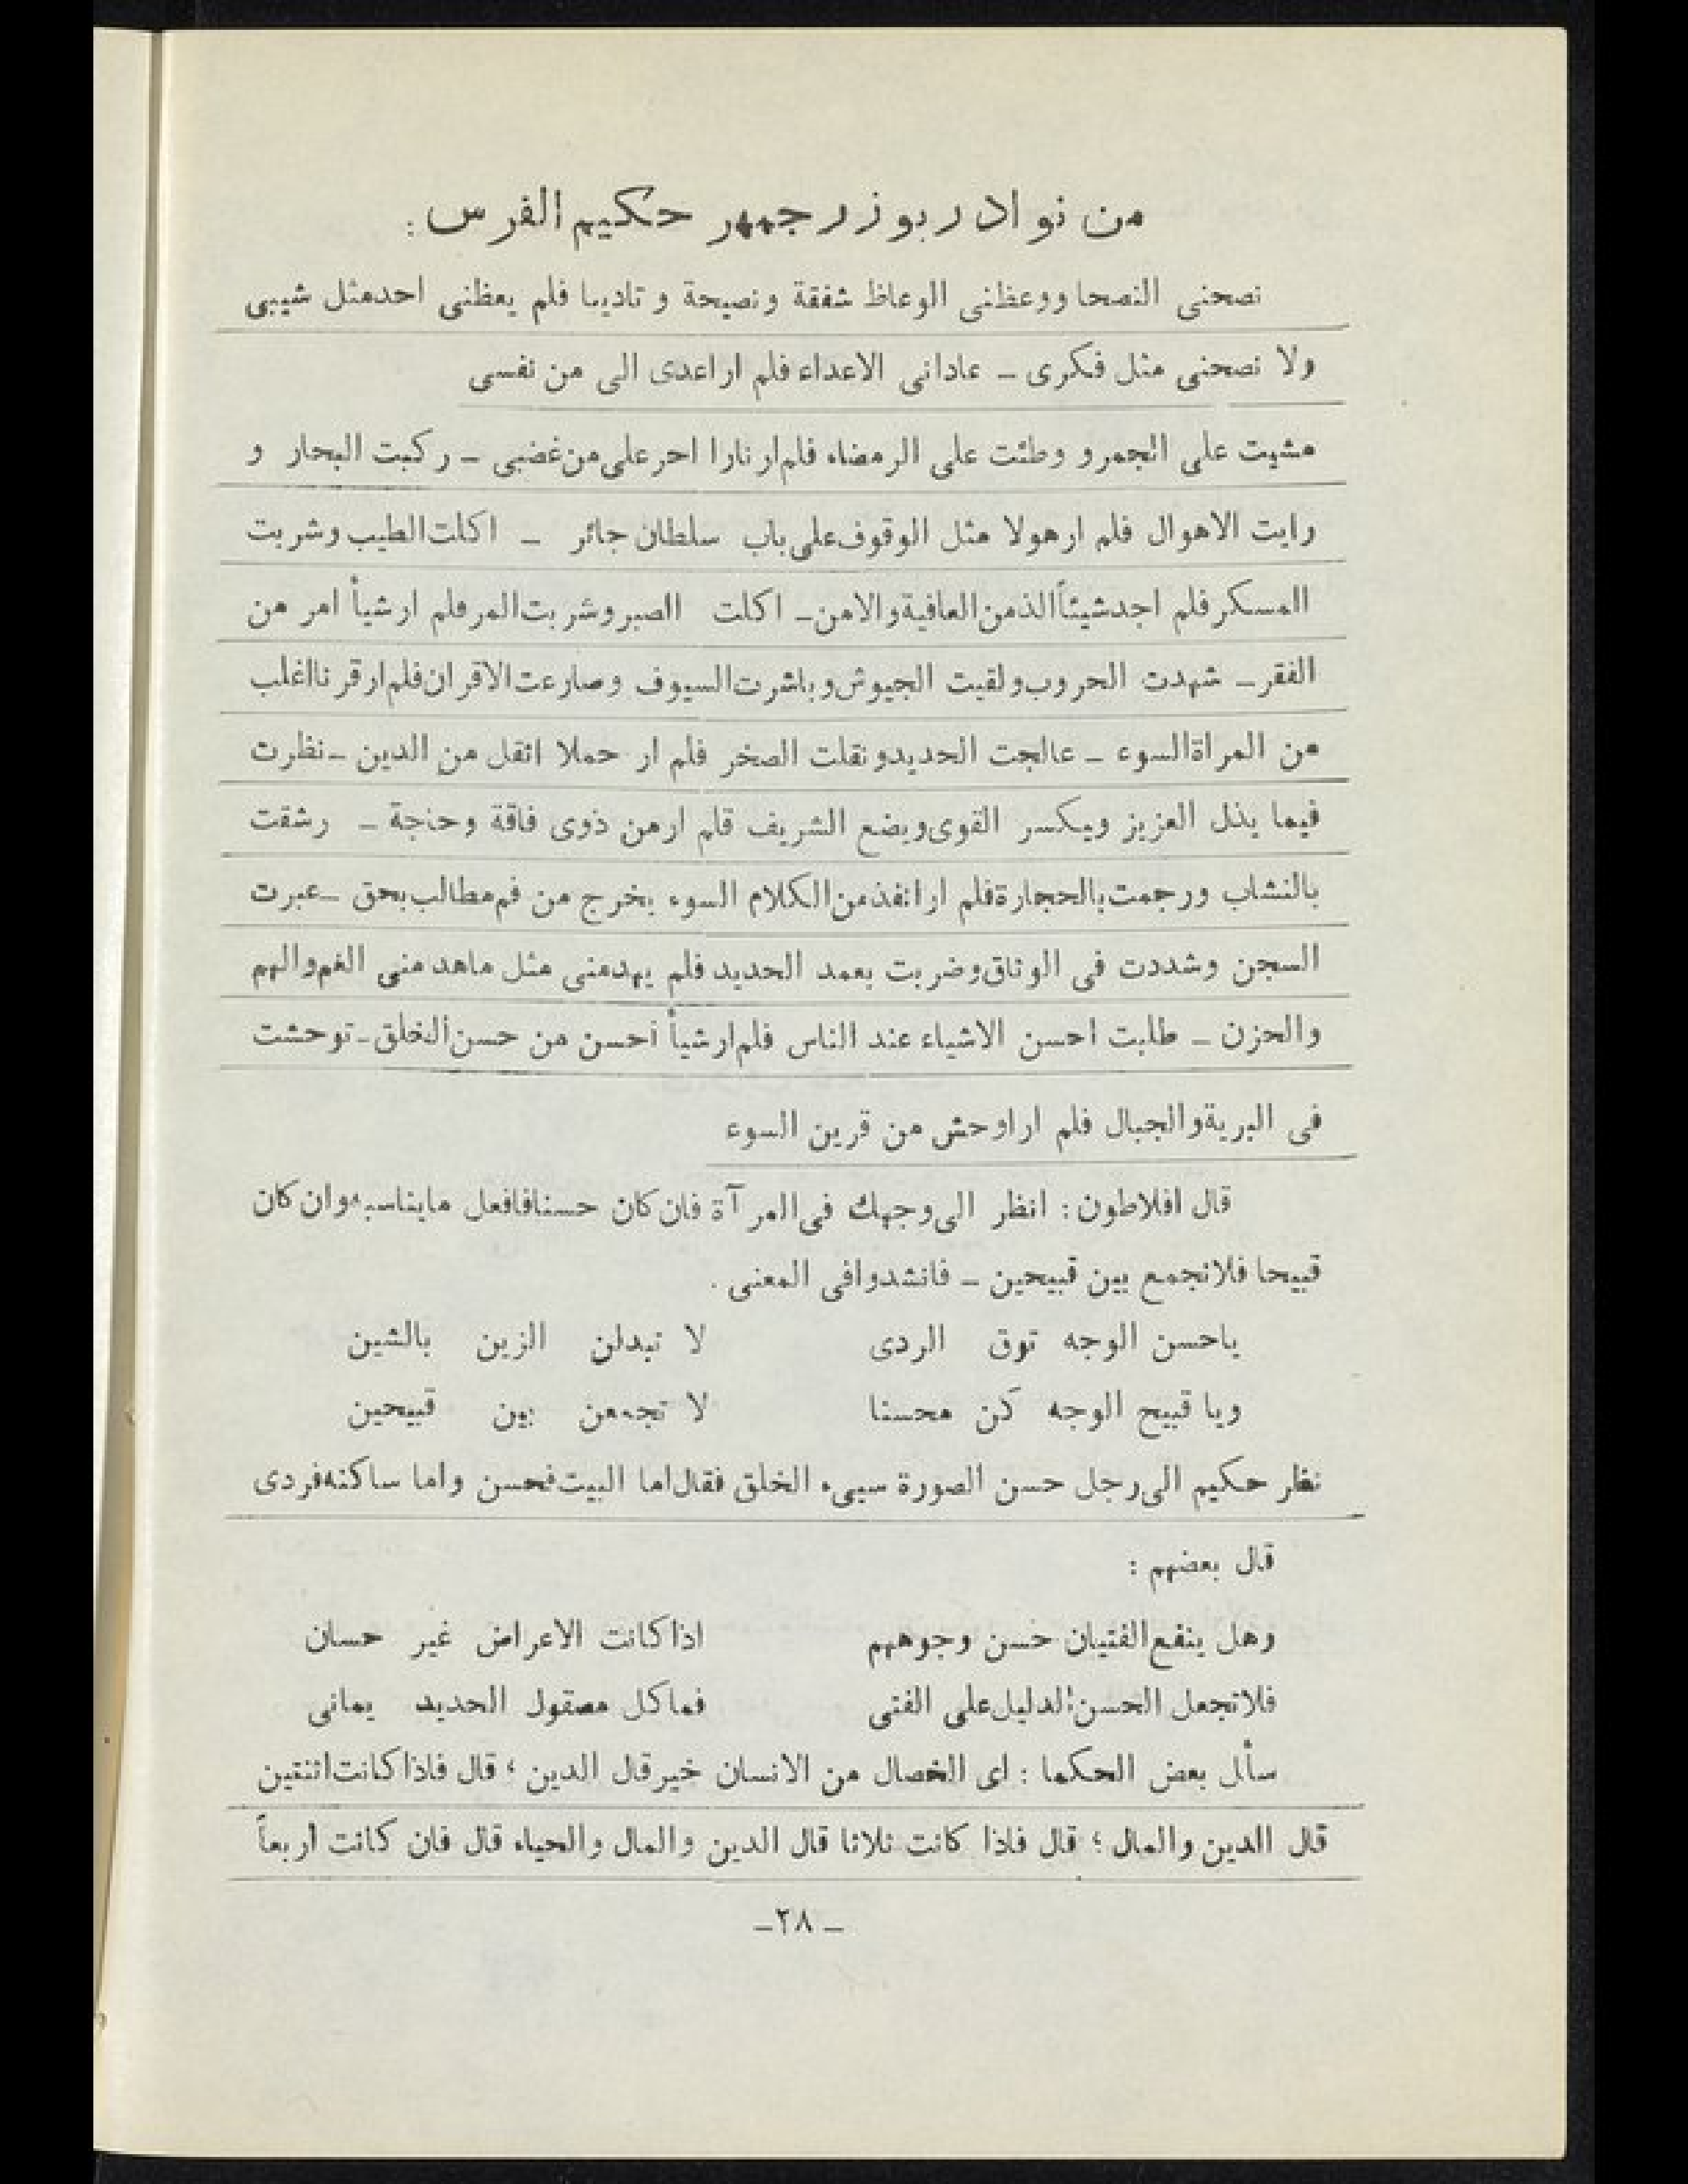 من نوادر بوزرجمهر حكيم الفرس :
نصحنى النصحا ووعظنى الوعاظ شفقة ونصيحة و تاديبا فلم يعظنى احدمثل شيبى
ولا نصحنى مثل فكرى – عادانى الاعداء فلم ار اعدى الى من نفسى
مشيت على الجمر و وطئت على الرمضاء فلم ار نارا احر على من غضبى – ركبت البحار و
رايت الاهوال فلم ار هولا مثل الوقوف على باب سلطان جائر – اكلت الطيب وشربت
المسكر فلم اجد شيئاً الذ من العافية والامن – اكلت الصبر وشربت المر فلم ار شيأ امر من
الفقر – شهدت الحروب ولقيت الجيوش وباشرت السيوف وصارعت الاقران فلم ار قرنا اغلب
من المراة السوء – عالجت الحديد ونقلت الصخر فلم ار حملا اثقل من الدين – نظرت
فيما يذل العزيز ويكسر القوى ويضع الشريف فلم ار من ذوى فاقة وحاجة – رشقت
بالنشاب ورجمت بالحجارة فلم ار انفذ من الكلام السوء يخرج من فم مطالب بحق – عبرت
السجن وشددت فى الوثاق وضربت بعمد الحديد فلم يهدمنى مثل ماهدمنى الغم والهم
والحزن – طلبت احسن الاشياء عند الناس فلم ار شيأ احسن من حسن الخلق – توحشت
فى البرية والجبال فلم ار اوحش من قرين السوء
قال افلاطون : انظر الى وجهك فى المرآة فان كان حسنا فافعل مايناسبه وان كان
قبيحا فلا تجمع بين قبيحين – فانشدوا فى المعنى .
ياحسن الوجه توق الردى لا تبدلن الزين بالشين
ويا قبيح الوجه كن محسنا لا تجمعن بين قبيحين
نظر حكيم الى رجل حسن الصورة سيىء الخلق فقال اما البيت فحسن واما ساكنه فردى
قال بعضهم :
وهل ينفع الفتيان حسن وجوههم اذا كانت الاعراض غير حسان
فلا تجعل الحسن الدليل على الفتى فما كل مصقول الحديد يمانى
سأل بعض الحكما : اى الخصال من الانسان خير قال الدين ؛ قال فاذا كانت اثنتين
قال الدين والمال ؛ قال فاذا كانت ثلاثا قال الدين والمال والحياء قال فان كانت اربعاً
– ٢٨ –